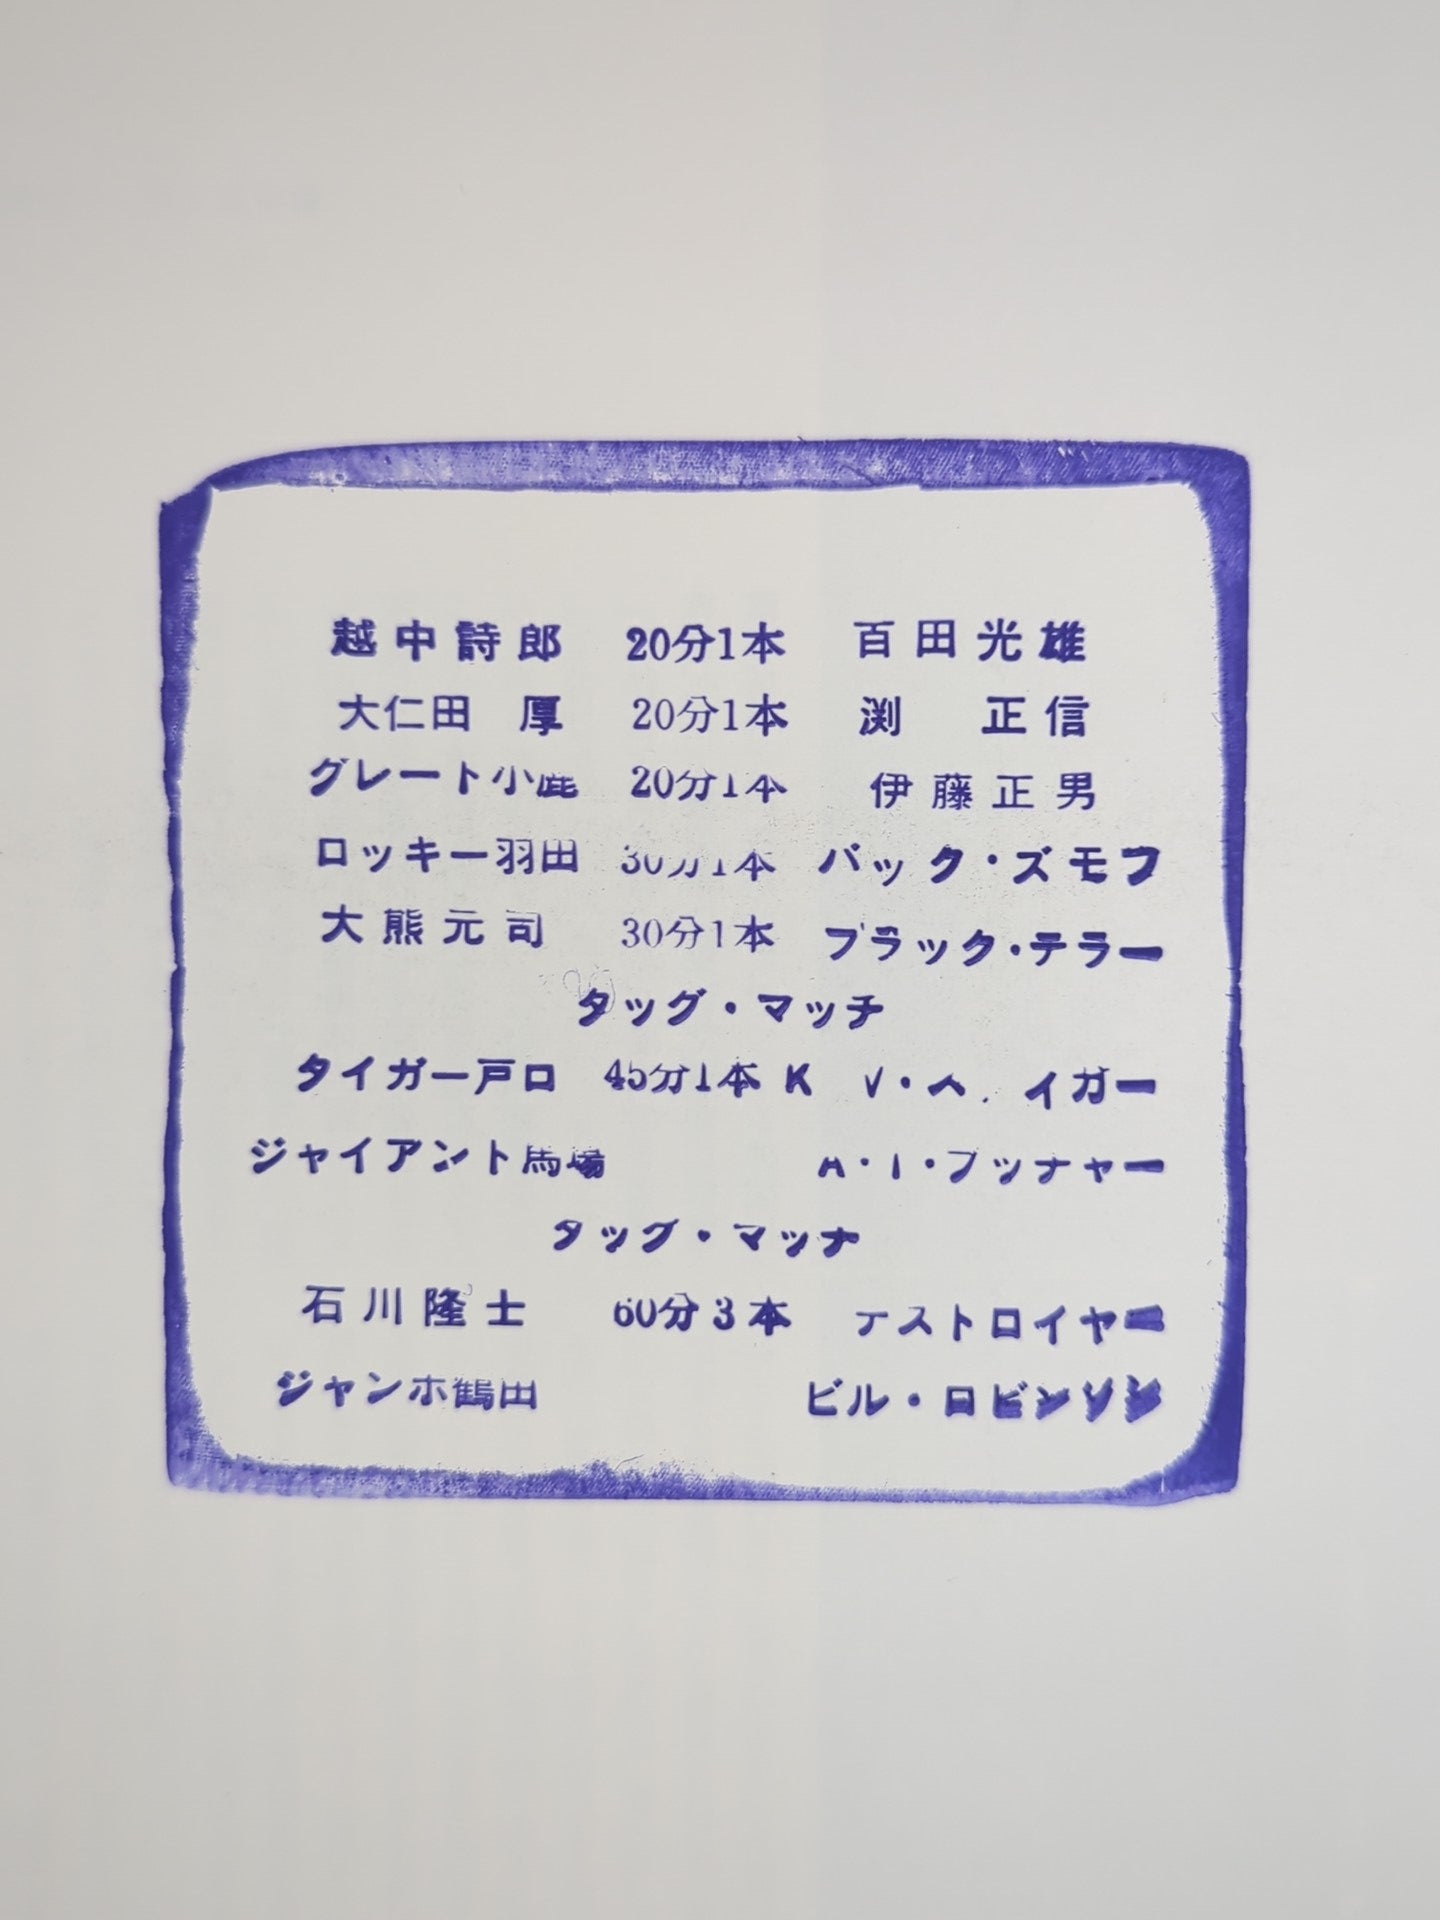 越中詩郎 20分1本 百田光雄
大仁田 厚 20分1本 渕 正信
グレート小鹿 20分1本 伊藤正男
ロッキー羽田 30分1本 バック・ズモフ
大熊元司 30分1本 ブラック・テラー
タッグ・マッチ
タイガー戸口 45分1本 K
ジャイアント馬場 A・T・ブッチャー
タッグ・マッチ
石川隆士 60分3本 デストロイヤー
ジャンボ鶴田 ビル・ロビンソン